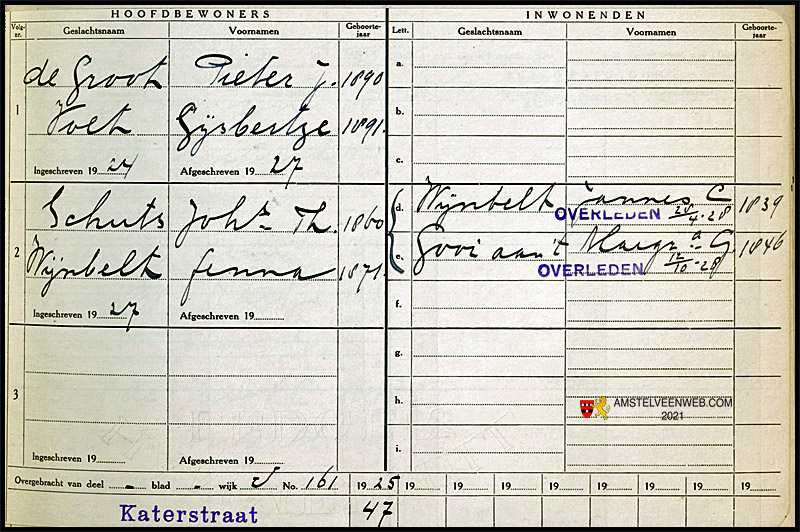 HOOFDBEWONERS
INWONENDEN
Volg-nr.
Geslachtsnaam
Voornamen
Geboorte-jaar
Lett.
Geslachtsnaam
Voornamen
Geboorte-jaar
1
de Groot Pieter J. 1890
Voet Gijsbertje 1891.
Ingeschreven 19 24 Afgeschreven 19 27
a.
b.
c.
2
Schuts Johs Th. 1860
Wijnbelt Jenna 1871.
Ingeschreven 19 27 Afgeschreven 19
d. Wijnbelt Jannes C 1839
OVERLEDEN 28/4-28
e. Gooi aan't Marga G. 1846
OVERLEDEN 12/10-28
f.
3
Ingeschreven 19 Afgeschreven 19
g.
h.
i.
AMSTELVEENWEB.COM
2021
Overgebracht van deel - blad - wijk No. 161 19 25 19 19 19 19 19 19 19 19
Katerstraat 47